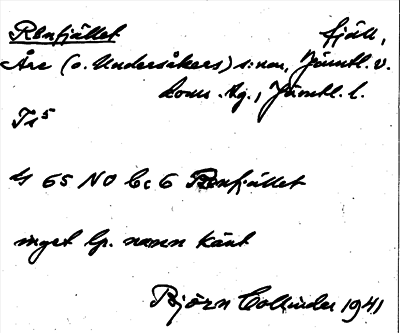 Renfjället fjäll,
Åre (o. Undersåkers) s:nar, Jämtl. v.
doms. tg., Jämtl. l.
Ts 5
G 65 NO bc 6 Renfjället
inget lp. namn känt
Björn Collinder 1941